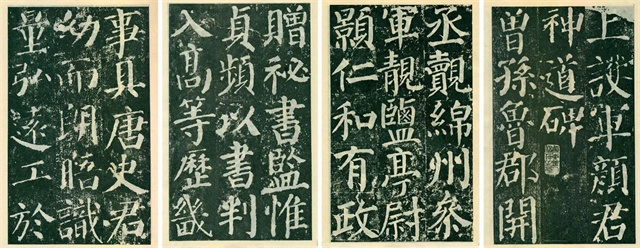 上護軍顏君
神道碑
曾孫魯郡開
丞覿綿州參
軍靚鹽亭尉
顥仁和有政
贈祕書監惟
貞頻以書判
入高等歷畿
事具唐史君
幼而朗晤識
量弘遠工於